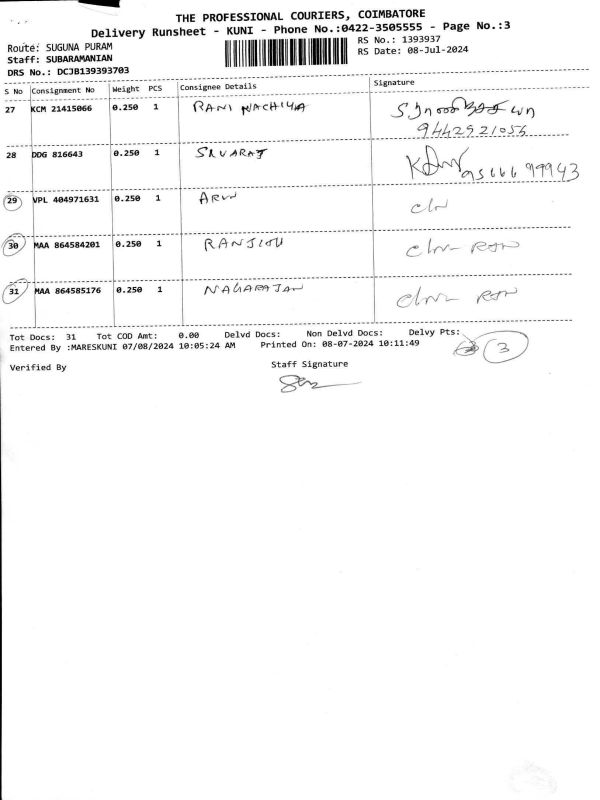 THE PROFESSIONAL COURIERS, COIMBATORE
Delivery Runsheet - KUNI - Phone No.:0422-3505555 - Page No.:3
Route: SUGUNA PURAM
RS No.: 1393937
Staff: SUBARAMANIAN
RS Date: 08-Jul-2024
DRS No.: DCJB139393703
S No Consignment No Weight PCS Consignee Details Signature
27 KCM 21415066 0.250 1 RANI NACHIYA
9442921056
28 DDG 816643 0.250 1
9566699943
29 VPL 404971631 0.250 1 ARUN
30 MAA 864584201 0.250 1
31 MAA 864585176 0.250 1 NAGARAJAN
Tot Docs: 31 Tot COD Amt: 0.00 Delvd Docs: Non Delvd Docs: Delvy Pts:
Entered By :MARESKUNI 07/08/2024 10:05:24 AM Printed On: 08-07-2024 10:11:49
3
Verified By Staff Signature